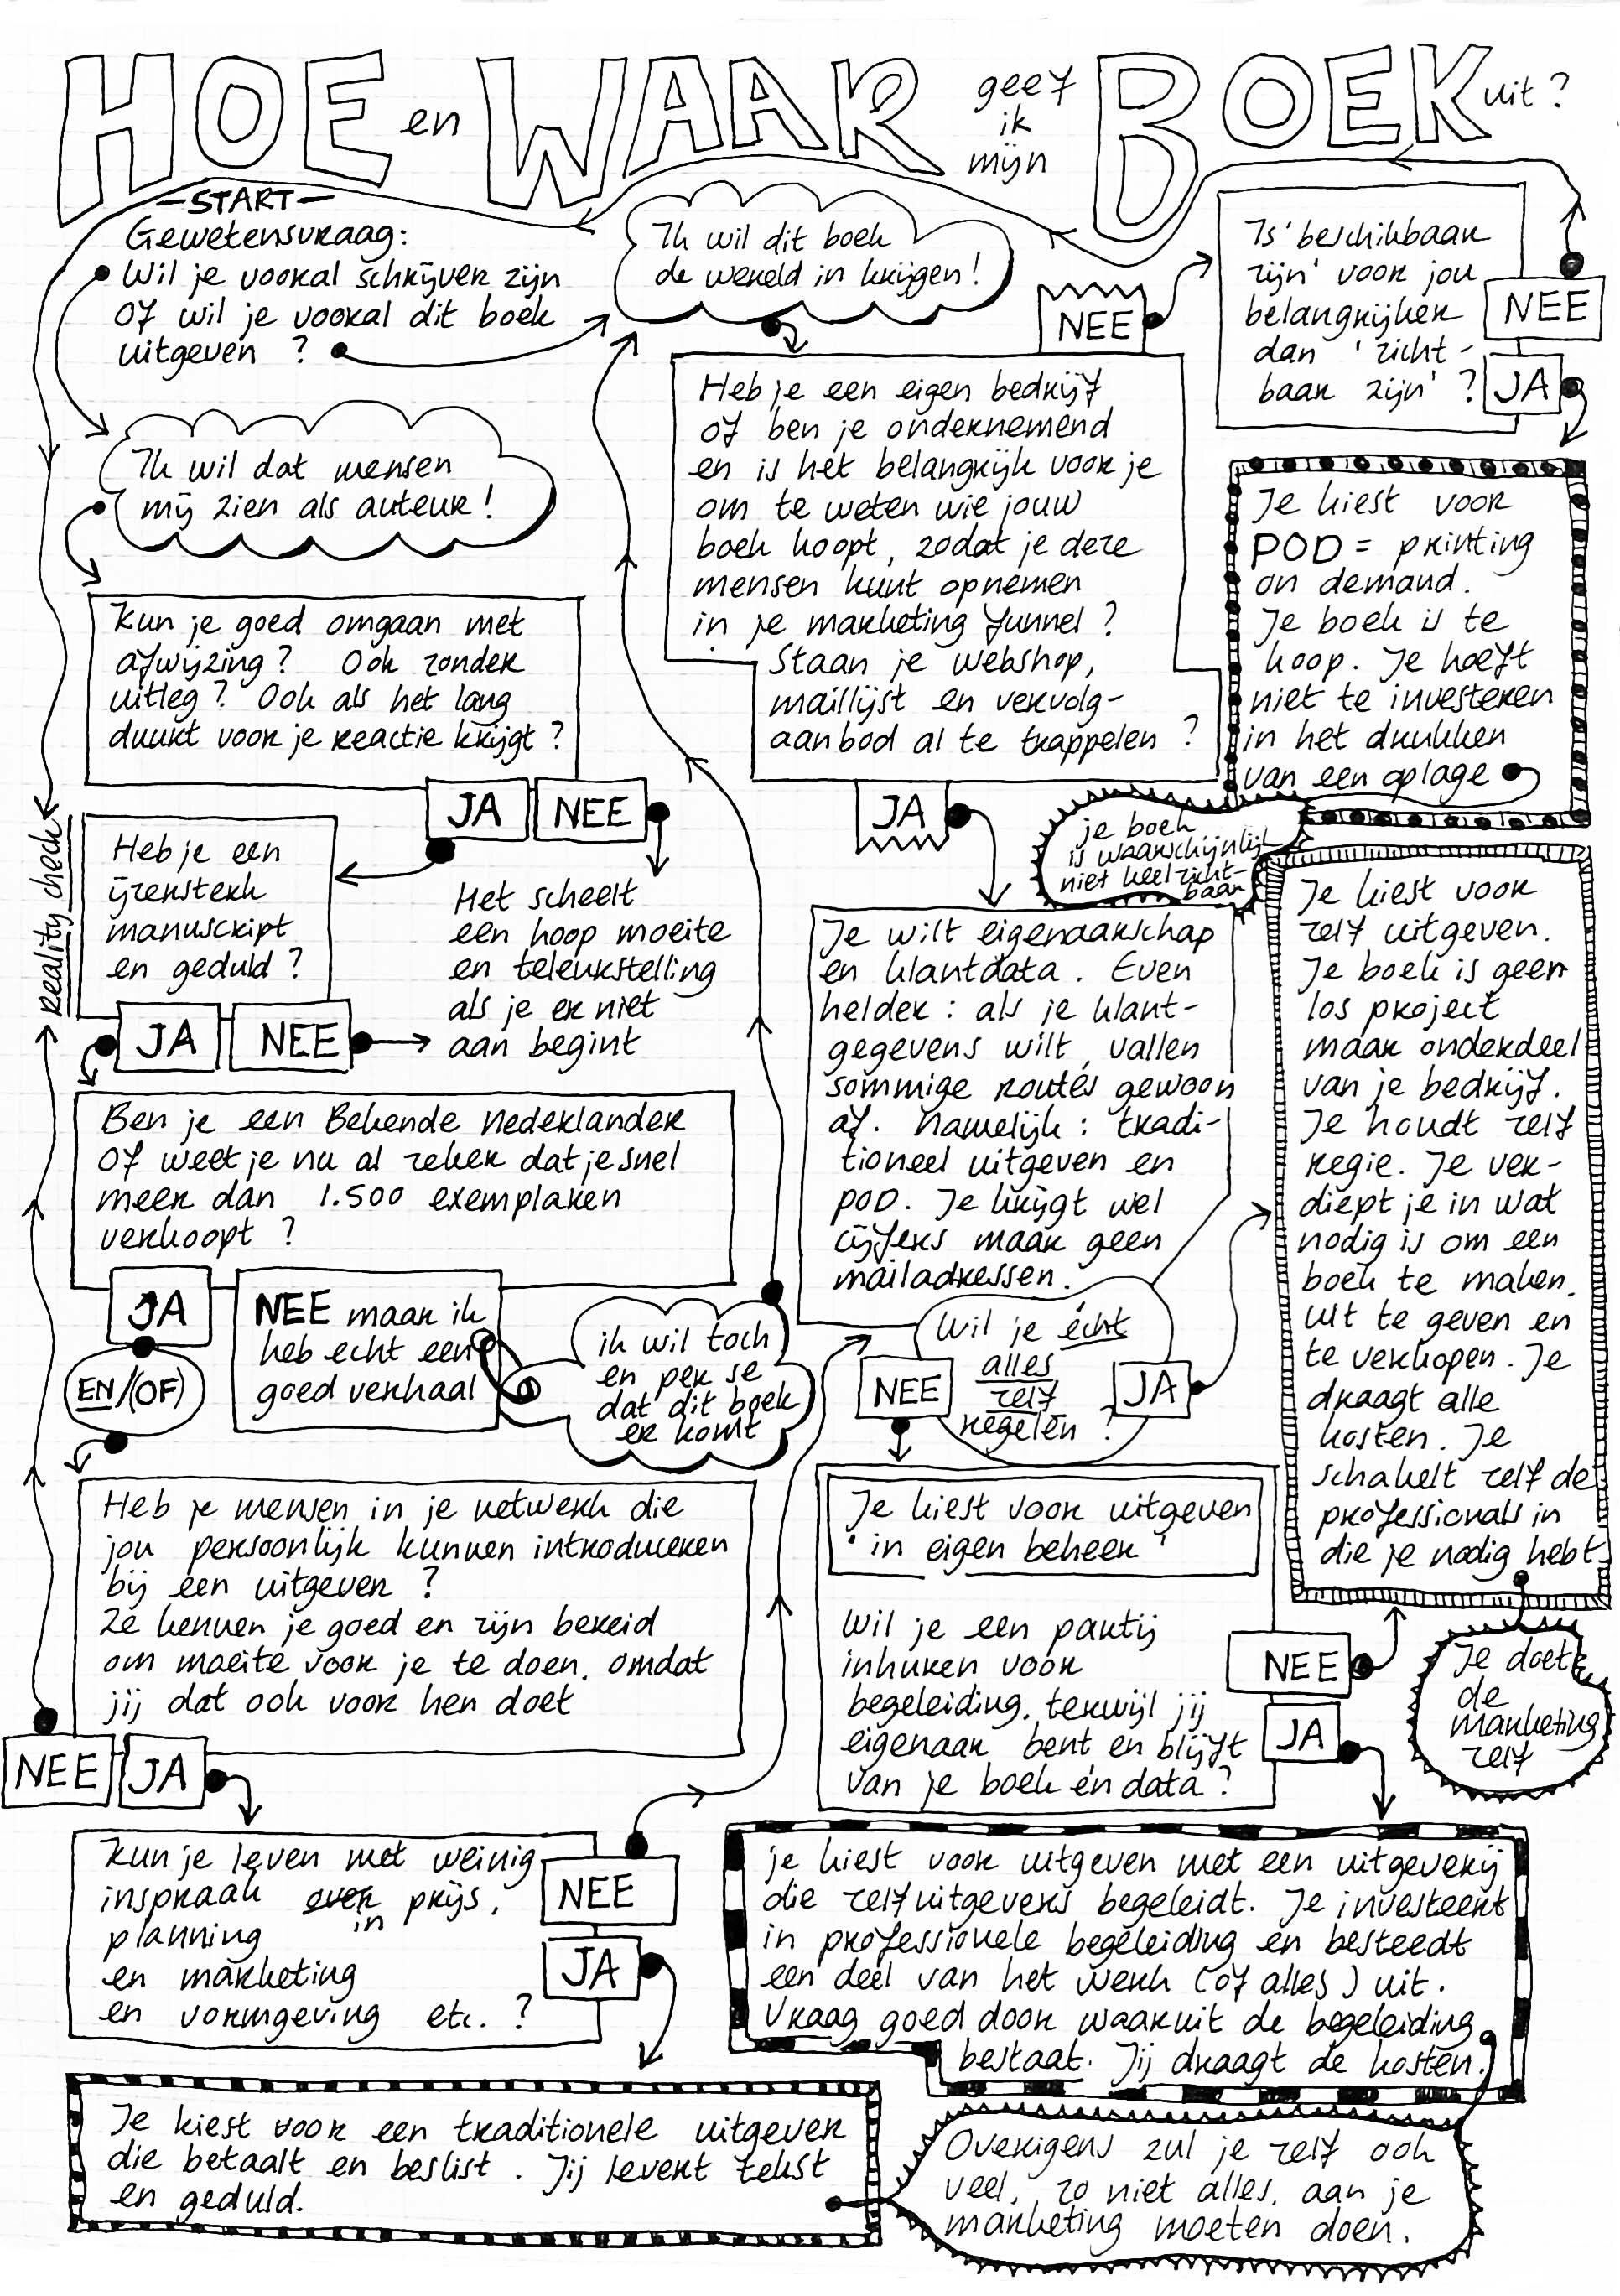 HOE en WAAR geef ik mijn BOEK uit?
-START-
Gewetensvraag:
Wil je vooral schrijver zijn
of wil je vooral dit boek
uitgeven ?
Ik wil dit boek
de wereld in krijgen!
Ik wil dat mensen
mij zien als auteur!
Kun je goed omgaan met
afwijzing? Ook zonder
uitleg? Ook als het lang
duurt voor je reactie krijgt?
JA
NEE
Heb je een
ijzersterk
manuscript
en geduld?
JA
NEE
Het scheelt
een hoop moeite
en teleurstelling
als je er niet
aan begint
reality check
Ben je een Bekende Nederlander
of weet je nu al zeker dat je snel
meer dan 1.500 exemplaren
verkoopt ?
JA
EN/(OF)
NEE maar ik
heb echt een
goed verhaal
ik wil toch
en per se
dat dit boek
er komt
Heb je mensen in je netwerk die
jou persoonlijk kunnen introduceren
bij een uitgever ?
Ze kennen je goed en zijn bereid
om moeite voor je te doen, omdat
jij dat ook voor hen doet
NEE
JA
Kun je leven met weinig
inspraak over in prijs,
planning
en marketing
en vormgeving etc. ?
NEE
JA
Je kiest voor een traditionele uitgever
die betaalt en beslist. Jij levert tekst
en geduld.
Heb je een eigen bedrijf
of ben je ondernemend
en is het belangrijk voor je
om te weten wie jouw
boek koopt, zodat je deze
mensen kunt opnemen
in je marketing funnel ?
Staan je webshop,
maillijst en vervolg-
aanbod al te trappelen ?
NEE
JA
Is 'beschikbaar
zijn' voor jou
belangrijker
dan 'zicht-
baar zijn' ?
NEE
JA
Je kiest voor
POD = printing
on demand.
Je boek is te
koop. Je hoeft
niet te investeren
in het drukken
van een oplage
je boek
is waarschijnlijk
niet heel zicht-
baar
Je wilt eigenaarschap
en klantdata. Even
helder: als je klant-
gegevens wilt, vallen
sommige routes gewoon
af. Namelijk: tradi-
tioneel uitgeven en
POD. Je krijgt wel
cijfers maar geen
mailadressen.
Wil je écht
alles
zelf
regelen ?
NEE
JA
Je kiest voor
zelf uitgeven.
Je boek is geen
los project
maar onderdeel
van je bedrijf.
Je houdt zelf
regie. Je ver-
diept je in wat
nodig is om een
boek te maken,
uit te geven en
te verkopen. Je
draagt alle
kosten. Je
schakelt zelf de
professionals in
die je nodig hebt.
Je doet
de
marketing
zelf
Je kiest voor uitgeven
'in eigen beheer'
Wil je een partij
inhuren voor
begeleiding, terwijl jij
eigenaar bent en blijft
van je boek én data?
NEE
JA
je kiest voor uitgeven met een uitgeverij
die zelfuitgevers begeleidt. Je investeert
in professionele begeleiding en besteedt
een deel van het werk (of alles) uit.
Vraag goed door waaruit de begeleiding
bestaat. Jij draagt de kosten.
Overigens zul je zelf ook
veel, zo niet alles, aan je
marketing moeten doen.